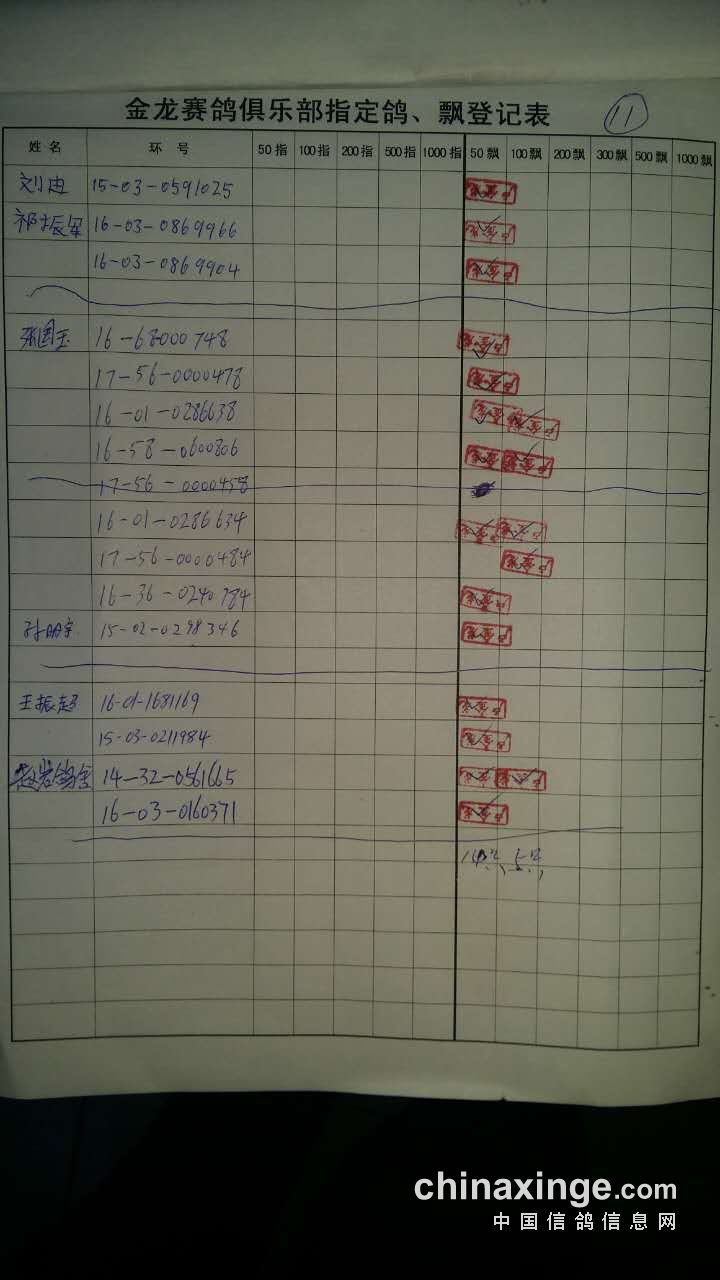 金龙赛鸽俱乐部指定鸽、飘登记表 11
姓名 环号 50指 100指 200指 500指 1000指 50飘 100飘 200飘 300飘 500飘 1000飘
刘迪 15-03-0591025
祁振军 16-03-0869966
16-03-0869904
张国玉 16-68000748
17-56-0000478
16-01-0286638
16-58-0600806
17-56-0000458
16-01-0286634
17-56-0000484
16-36-0240784
孙明宇 15-02-0298346
王振超 16-01-1681169
15-03-0211984
14-32-0561665
16-03-0160371
chinaxinge.com
中国信鸽信息网